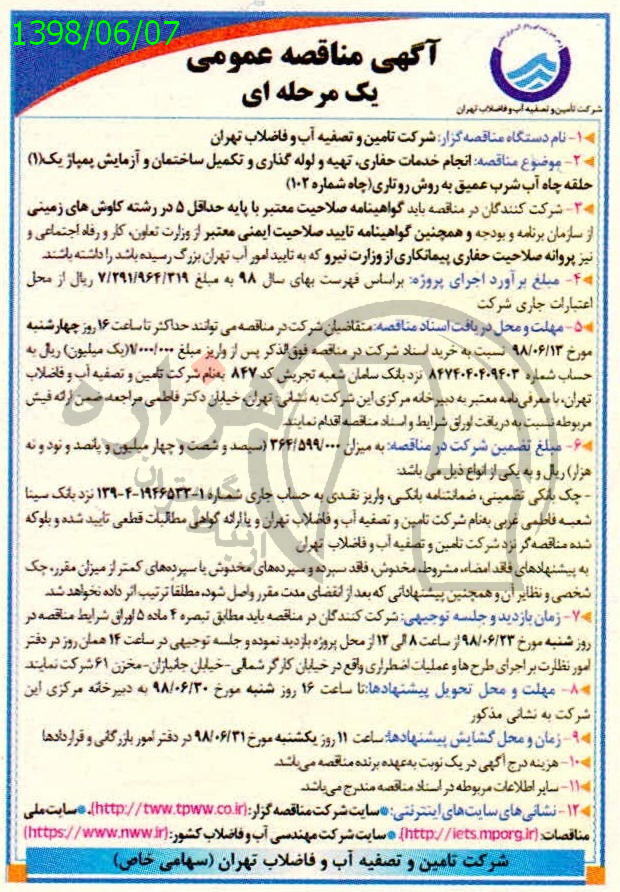 1398/06/07
آگهی مناقصه عمومی
یک مرحله ای
شرکت تأمین و تصفیه آب و فاضلاب تهران
۱- نام دستگاه مناقصه گزار: شرکت تامین و تصفیه آب و فاضلاب تهران
۲- موضوع مناقصه: انجام خدمات حفاری، تهیه و لوله گذاری و تکمیل ساختمان و آزمایش پمپاژ یک(۱)
حلقه چاه آب شرب عمیق به روش روتاری(چاه شماره ۱۰۲)
۳- شرکت کنندگان در مناقصه باید گواهینامه صلاحیت معتبر با پایه حداقل ۵ در رشته کاوش های زمینی
از سازمان برنامه و بودجه و همچنین گواهینامه تایید صلاحیت ایمنی معتبر از وزارت تعاون، کار و رفاه اجتماعی و
نیز پروانه صلاحیت حفاری پیمانکاری از وزارت نیرو که به تایید امور آب تهران بزرگ رسیده باشد را داشته باشند.
۴- مبلغ برآورد اجرای پروژه: براساس فهرست بهای سال ۹۸ به مبلغ ۷/۲۹۱/۹۶۴/۳۱۹ ریال از محل
اعتبارات جاری شرکت
۵- مهلت و محل دریافت اسناد مناقصه: متقاضیان شرکت در مناقصه می توانند حداکثر تا ساعت ۱۶ روز چهارشنبه
مورخ ۹۸/۰۶/۱۳ نسبت به خرید اسناد شرکت در مناقصه فوق‌الذکر پس از واریز مبلغ ۱/۰۰۰/۰۰۰(یک میلیون) ریال به
حساب شماره ۸۴۷۴۰۴۰۴۰۹۴۰۳ نزد بانک سامان شعبه تجریش کد ۸۴۷ به‌نام شرکت تامین و تصفیه آب و فاضلاب
تهران، با معرفی‌نامه معتبر به دبیرخانه مرکزی این شرکت به نشانی: تهران، خیابان دکتر فاطمی مراجعه، ضمن ارائه فیش
مربوطه نسبت به دریافت اوراق شرایط و اسناد مناقصه اقدام نمایند.
۶- مبلغ تضمین شرکت در مناقصه: به میزان ۳۶۴/۵۹۹/۰۰۰ (سیصد و شصت و چهار میلیون و پانصد و نود و نه
هزار) ریال و به یکی از انواع ذیل می باشد:
- چک بانکی تضمینی، ضمانتنامه بانکی، واریز نقدی به حساب جاری شماره ۱-۱۹۴۶۵۳۳-۴-۱۳۹ نزد بانک سینا
شعبه فاطمی غربی به‌نام شرکت تامین و تصفیه آب و فاضلاب تهران و یا ارائه گواهی مطالبات قطعی تایید شده و بلوکه
شده مناقصه گر نزد شرکت تامین و تصفیه آب و فاضلاب تهران
به پیشنهادهای فاقد امضاء، مشروط، مخدوش، فاقد سپرده و سپرده‌های مخدوش یا سپرده‌های کمتر از میزان مقرر، چک
شخصی و نظایر آن و همچنین پیشنهاداتی که بعد از انقضای مدت مقرر واصل شود، مطلقا ترتیب اثر داده نخواهد شد.
۷- زمان بازدید و جلسه توجیهی: شرکت کنندگان در مناقصه باید مطابق تبصره ۴ ماده ۵ اوراق شرایط مناقصه در
روز شنبه مورخ ۹۸/۰۶/۲۳ از ساعت ۸ الی ۱۲ از محل پروژه بازدید نموده و جلسه توجیهی در ساعت ۱۴ همان روز در دفتر
امور نظارت بر اجرای طرح ها و عملیات اضطراری واقع در خیابان کارگر شمالی-خیابان جانبازان-مخزن ۶۱ شرکت نمایند.
۸- مهلت و محل تحویل پیشنهادها: تا ساعت ۱۶ روز شنبه مورخ ۹۸/۰۶/۳۰ به دبیرخانه مرکزی این
شرکت به نشانی مذکور
۹- زمان و محل گشایش پیشنهادها: ساعت ۱۱ روز یکشنبه مورخ ۹۸/۰۶/۳۱ در دفتر امور بازرگانی و قراردادها
۱۰- هزینه درج آگهی در یک نوبت به‌عهده برنده مناقصه می‌باشد.
۱۱- سایر اطلاعات مربوطه در اسناد مناقصه مندرج می‌باشد.
۱۲- نشانی های سایت‌های اینترنتی: ● سایت شرکت مناقصه گزار: (http://tww.tpww.co.ir). ● سایت ملی
مناقصات: (http://iets.mporg.ir). ● سایت شرکت مهندسی آب و فاضلاب کشور: (https://www.nww.ir)
شرکت تامین و تصفیه آب و فاضلاب تهران (سهامی خاص)